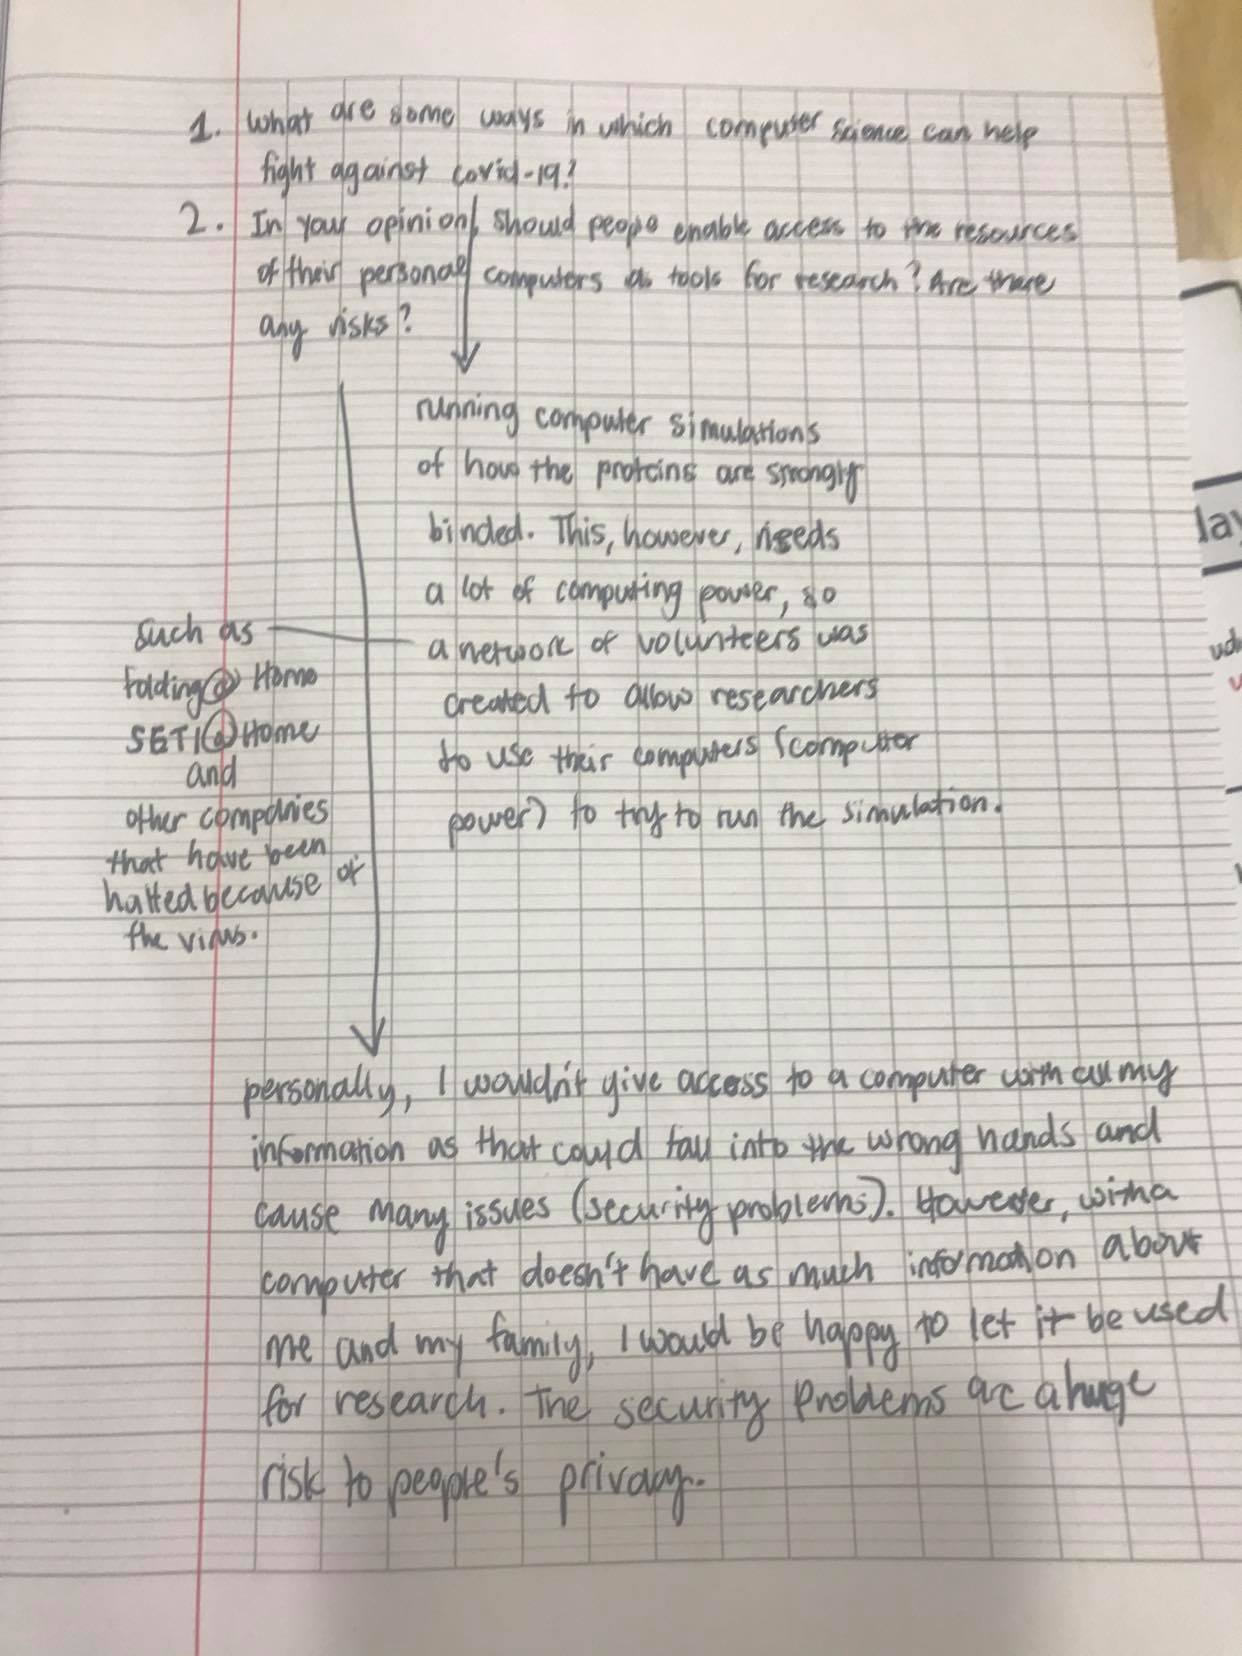 1. What are some ways in which computer science can help
fight against covid-19?
2. In your opinion, should people enable access to the resources
of their personal computers as tools for research? Are there
any risks?
running computer simulations
of how the proteins are strongly
binded. This, however, needs
a lot of computing power, so
a network of volunteers was
created to allow researchers
to use their computers (computer
power) to try to run the simulation.
such as
folding@Home
SETI@Home
and
other companies
that have been
halted because of
the virus.
personally, I wouldn't give access to a computer with all my
information as that could fall into the wrong hands and
cause many issues (security problems). However, with a
computer that doesn't have as much information about
me and my family, I would be happy to let it be used
for research. The security problems are a huge
risk to people's privacy.
lay